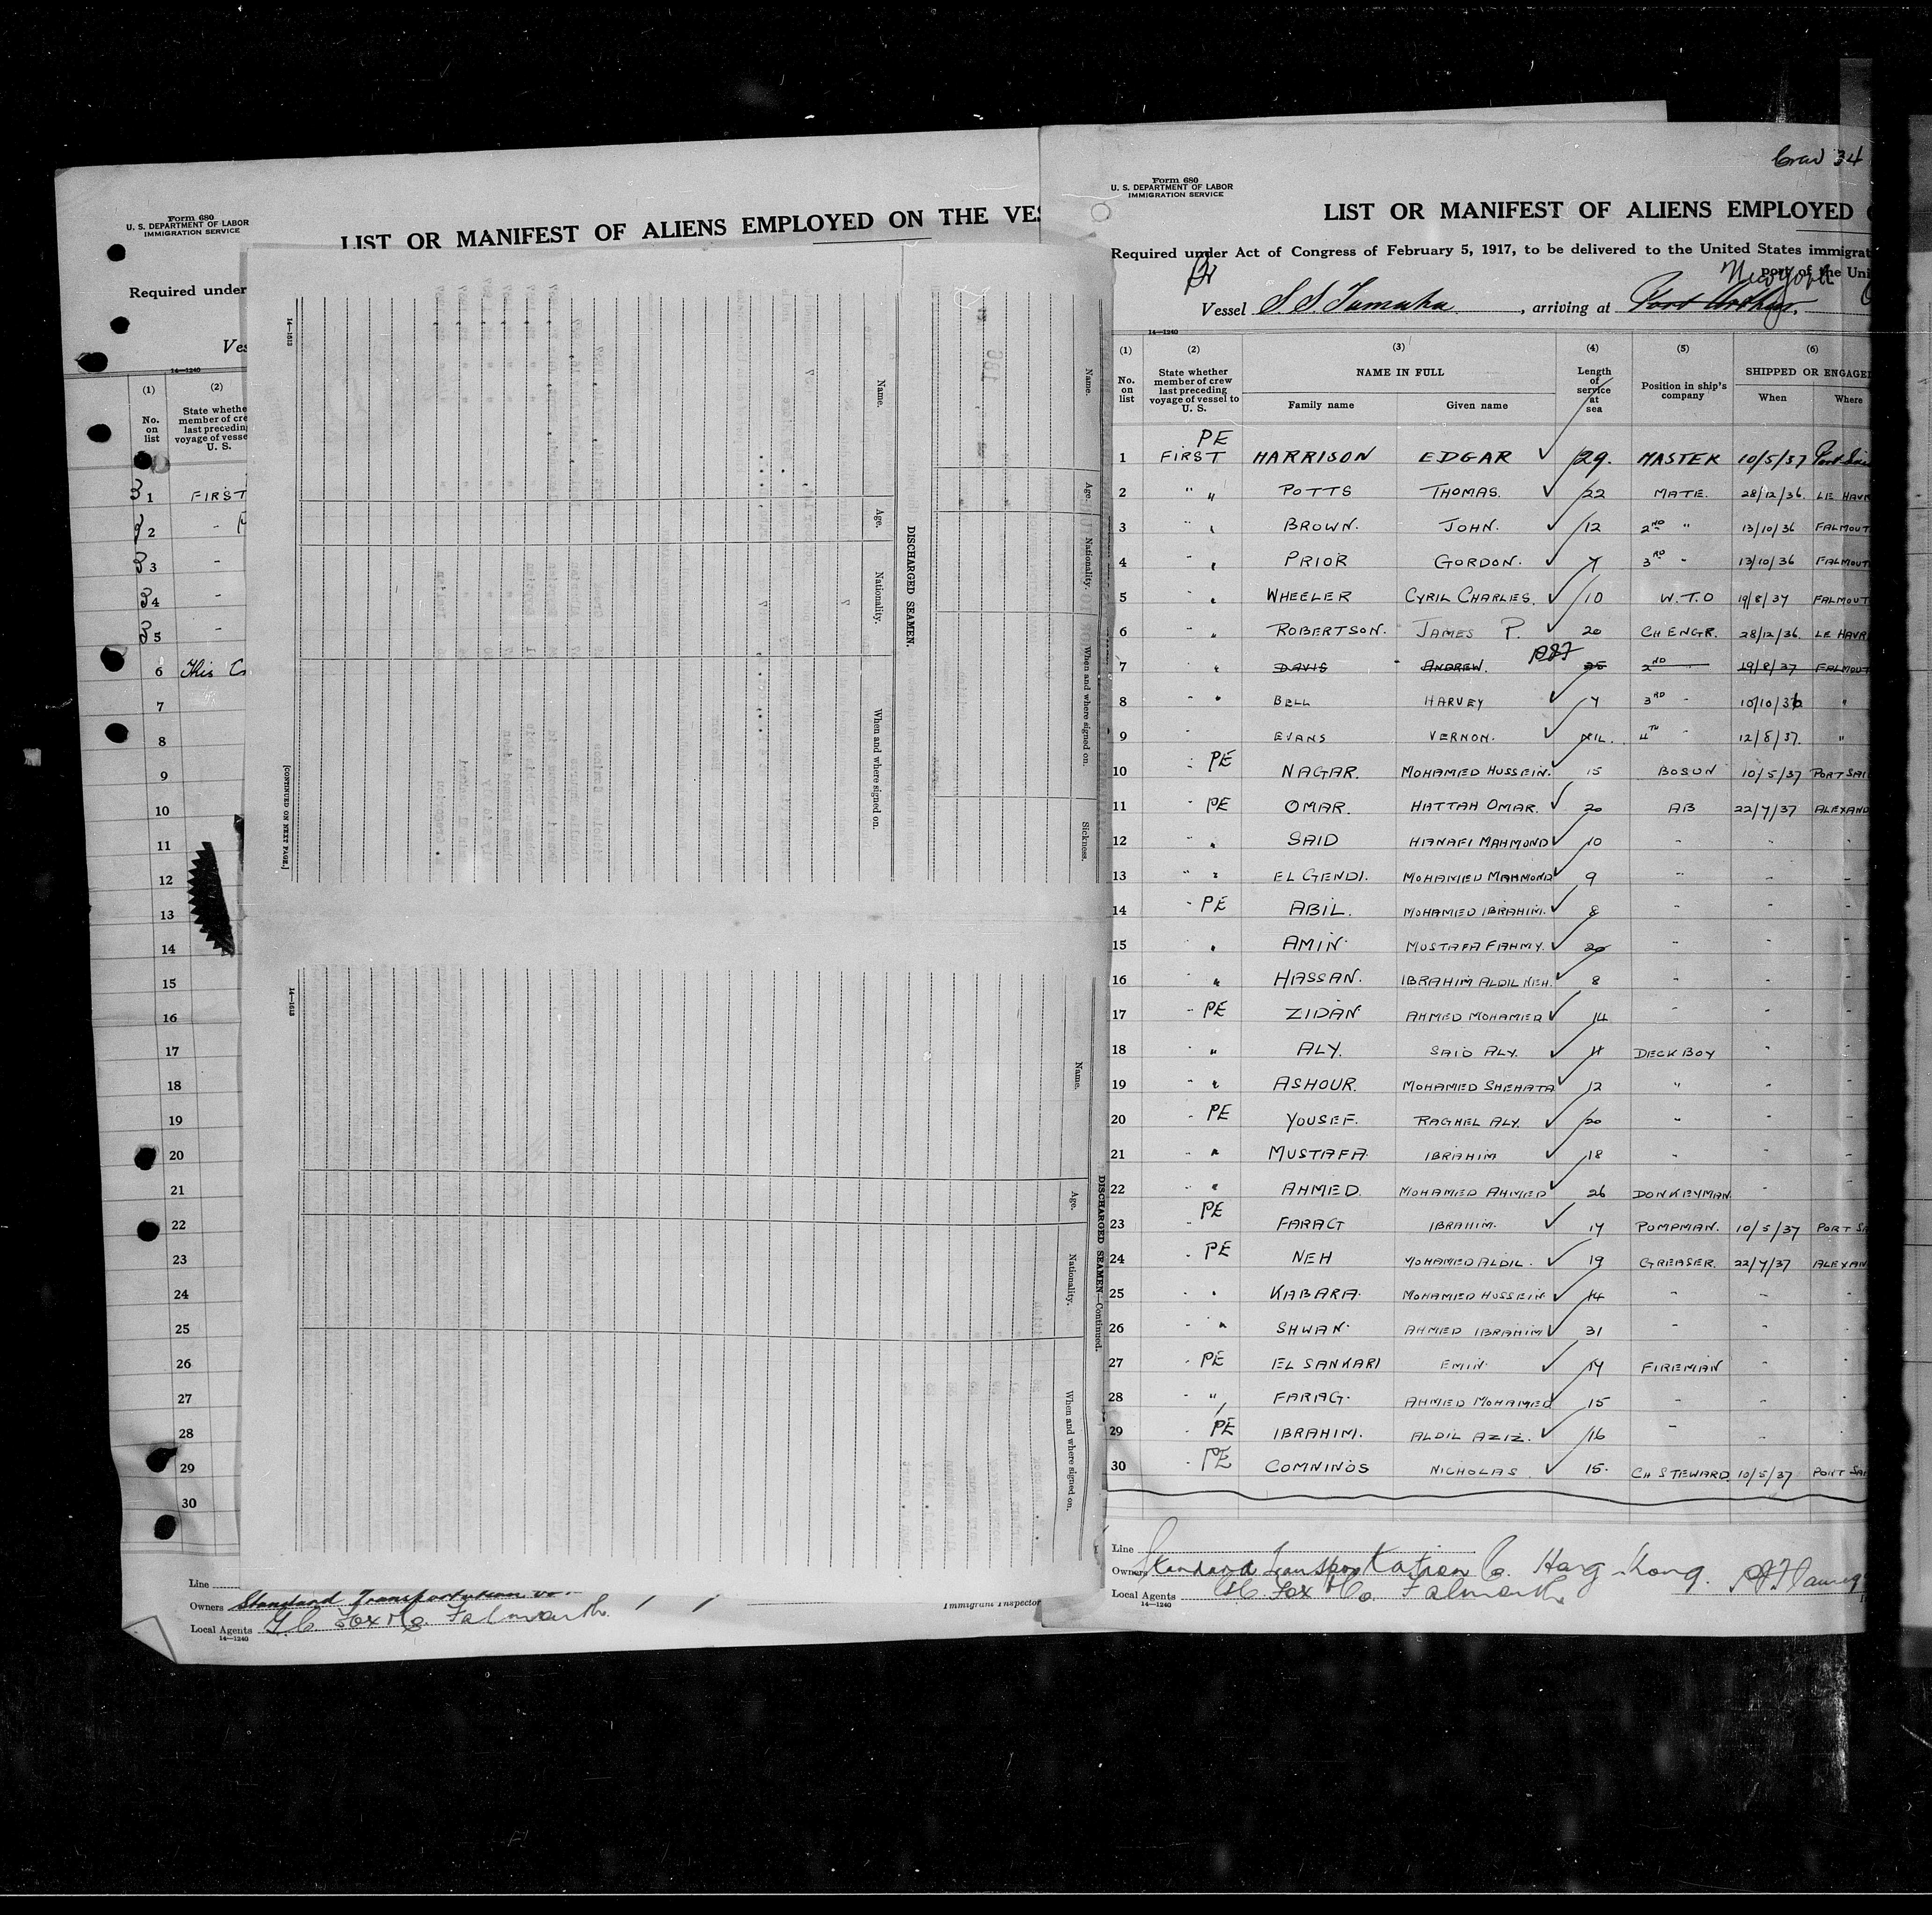 Form 680
U. S. DEPARTMENT OF LABOR
IMMIGRATION SERVICE
LIST OR MANIFEST OF ALIENS EMPLOYED ON THE VES
Required under
Ves
14—1240
(1) (2)
No. on list
State whethe member of cre last preceding voyage of vesse U. S.
1 FIRST
2
3
4
5
6 This
7
8
9
10
11
12
13
14
15
16
17
18
19
20
21
22
23
24
25
26
27
28
29
30
Line
Owners Standard Transportation Co.
Local Agents G. C. Fox & Co. Falmouth.
14—1240
Immigrant Inspector
14—1613
Name. Age. Nationality. When and where signed on.
[CONTINUED ON NEXT PAGE.]
DISCHARGED SEAMEN.
Name. Age. Nationality. When and where signed on. Sickness.
14—1613
Name. Age. Nationality. When and where signed on.
DISCHARGED SEAMEN—Continued.
34
Form 680
U. S. DEPARTMENT OF LABOR
IMMIGRATION SERVICE
LIST OR MANIFEST OF ALIENS EMPLOYED
Required under Act of Congress of February 5, 1917, to be delivered to the United States immigrat
port of the Uni
New York
Vessel S.S. Tamaha, arriving at Port Arthur,
14—1240
(1) (2) (3) (4) (5) (6)
No. on list
State whether member of crew last preceding voyage of vessel to U. S.
NAME IN FULL
Family name Given name
Length of service at sea
Position in ship's company
SHIPPED OR ENGAGED
When Where
PE
1 FIRST HARRISON EDGAR 29. MASTER 10/5/37 Port Sai
2 " " POTTS THOMAS. 22 MATE. 28/12/36. LE HAVR
3 BROWN. JOHN. 12 2ND " 13/10/36 FALMOUT
4 PRIOR GORDON. 7 3RD - 13/10/36 FALMOUT
5 WHEELER CYRIL CHARLES. 10 W.T.O 19/8/37 FALMOUT
6 ROBERTSON. JAMES P. 20 CH ENGR. 28/12/36. LE HAVR
7 DAVIS ANDREW. 25 2ND 19/8/37 FALMOUT
8 BELL HARVEY 7 3RD - 10/10/36 "
9 EVANS VERNON. NIL. 4TH - 12/8/37. "
10 PE NAGAR. MOHAMED HUSSEIN. 15 BOSUN 10/5/37 PORT SAI
11 PE OMAR. HATTAH OMAR. 20 AB 22/7/37 ALEXAND
12 SAID HANAFI MAHMOND 10 - - -
13 EL GENDI. MOHAMED MAHMOND 9 - - -
14 PE ABIL. MOHAMED IBRAHIM. 8 - - -
15 AMIN. MUSTAFA FAHMY. 20 - - -
16 HASSAN. IBRAHIM ALDIL NEH. 8 - - -
17 PE ZIDAN AHMED MOHAMED 14 - - -
18 " ALY. SAID ALY. 4 DECK BOY - -
19 ASHOUR. MOHAMED SHEHATA 12 " - -
20 PE YOUSEF. RAGHEL ALY. 20 - - -
21 MUSTAFA. IBRAHIM 18 - - -
22 AHMED. MOHAMED AHMED 26 DONKEYMAN - -
23 PE FARAG IBRAHIM. 17 PUMPMAN. 10/5/37 PORT SA
24 PE NEH MOHAMED ALDIL. 19 GREASER. 22/7/37 ALEXAN
25 KABARA. MOHAMED HUSSEIN 14 - - -
26 SHWAN. AHMED IBRAHIM 31 - - -
27 PE EL SANKARI EMIN. 17 FIREMAN - -
28 " FARAG. AHMED MOHAMED 15 - - -
29 PE IBRAHIM. ALDIL AZIZ. 16 - - -
30 PE COMNINOS NICHOLAS. 15. CH STEWARD. 10/5/37 PORT SAI
Line
Owners Standard Transportation Co. Hong Kong.
Local Agents G. C. Fox & Co. Falmouth.
14—1240